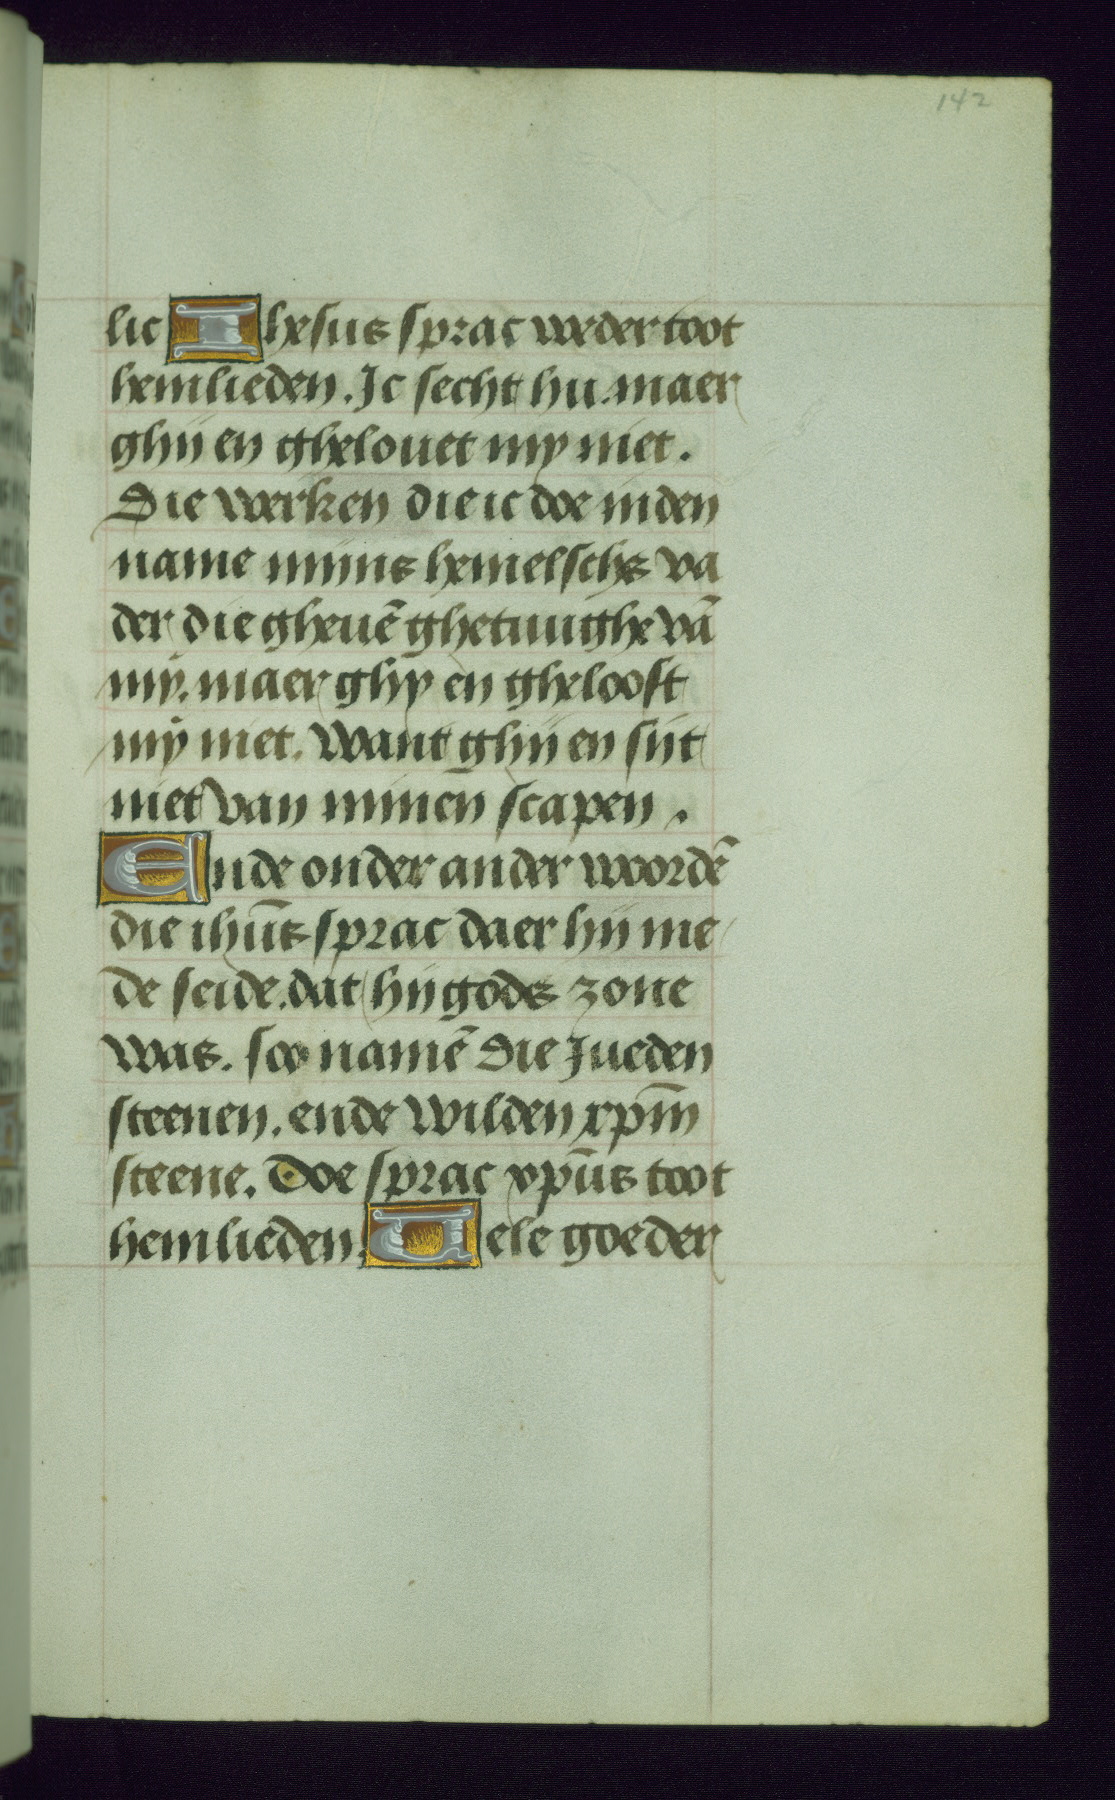 142
lic Ihesus sprac weder toot
hemlieden. Ic secht hu. maer
ghij en ghelouet my niet.
Die werken die ic doe in den
name mijns hemelschs va
der die gheuē ghetuughe vā
mij. maer ghy en ghelooft
mij niet. Want ghij en sijt
niet van minen scapen.
Ende onder ander woordē
die ihūs sprac daer hij me
de seide. dat hij gods zone
was. soo namē die Jueden
steenen. ende wilden xpm̄
steene. Doe sprac xpūs toot
hemlieden. Uele goeder